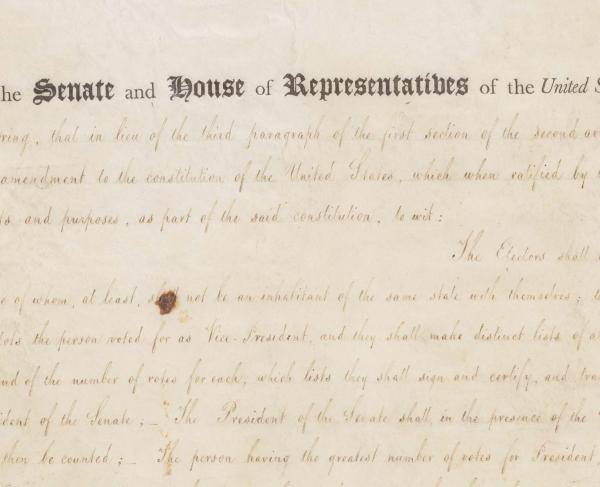 he Senate and House of Representatives of the United S
ring, that in lieu of the third paragraph of the first section of the second ar
amendment to the constitution of the United States, which when ratified by
ts and purposes, as part of the said constitution, to wit:
The Electors shall
e of whom, at least, shall not be an inhabitant of the same state with themselves; t
tors the person voted for as Vice-President, and they shall make distinct lists of a
nd of the number of votes for each, which lists they shall sign and certify, and tra
ident of the Senate; _ The President of the Senate shall, in the presence of the
then be counted; _ The person having the greatest number of votes for President,